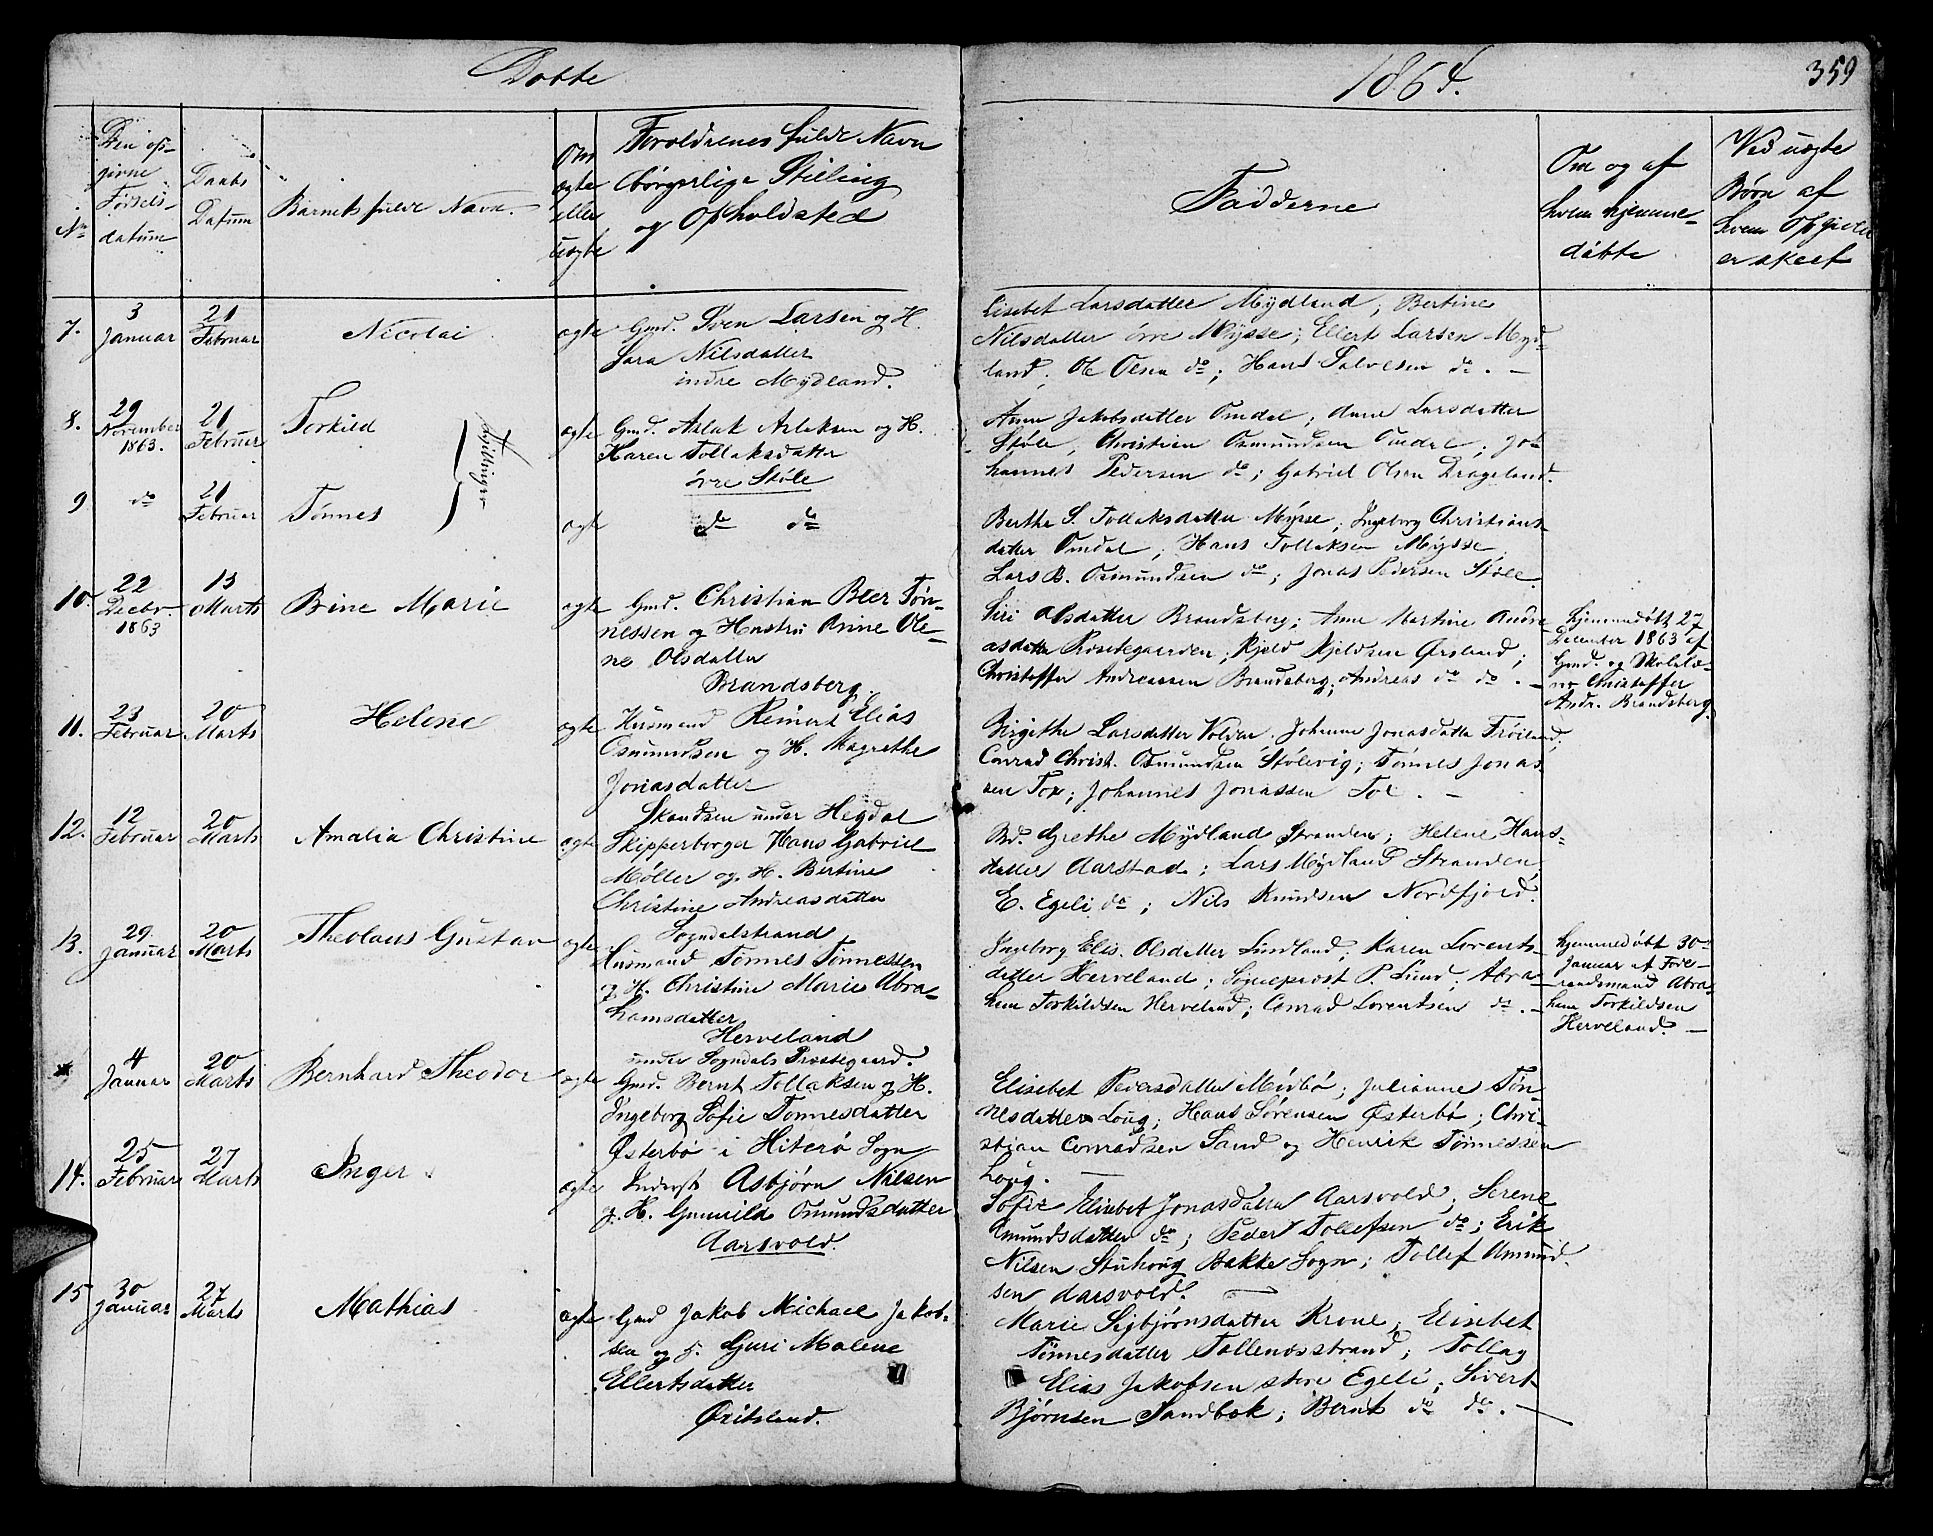 Døbte
1864.
359
No
Den op-
givne
Fødsels-
datum
Daabs
Datum
Barnets fulde Navn.
Om
ægte
eller
uægte
Forældrenes fulde Navn
borgerlige Stilling
og Opholdsted
Fadderne
Om og af
hvem hjemme-
døbte
Ved uægte
Børn af
hvem Opgivelse
er skeet
7.
3
Januar
21
Februar
Nicolai
ægte
Gmd. Sven Larsen og H.
Sara Nilsdatter
indre Mydland.
Lisebet Larsdatter Mydland; Bertine
Nilsdatter övre Mysse; Ellert Larsen Myd-
land; Ole Olsen do; Hans Salvesen do. —
8.
29
November
1863.
21
Februar
Torkild
Tvillinger
ægte
Gmd. Aslak Aslaksen og H.
Karen Tollaksdatter
övre Støle
Anne Jakobsdatter Omdal; Anne Larsdatter
Støle, Christian Osmundsen Omdal; Jo-
hannes Pedersen do; Gabriel Olsen Drageland.
9
do
21
Februar
Tønnes
ægte
do do
Berthe S. Tollaksdatter Mysse; Ingeborg Christians-
datter Omdal; Hans Tollaksen Mysse
Lars B. Osmundsen do; Jonas Pedersen Støle
10.
22
Decbr
1863
13
Marts
Bine Marie
ægte
Gmd. Christian Beer Tøn-
nessen og Hustru Anine Ole-
ne Olsdatter
Brandsberg.
Siri Olsdatter Brandsberg; Anne Martine Andre-
asdatter Præstegaarden; Kjeld Kjeldsen Ørsland;
Christoffer Andreassen Brandsberg; Andreas do do. —
hjemmedøbt 27
December 1863 af
Gmd. og Skolelæ-
rer Christoffer
Andr. Brandsberg.
11.
23
Februar
20
Marts
Helene
ægte
Husmand Reinert Elias
Osmundsen og H. Magrethe
Jonasdatter
Skandsen under Hegdal
Birgithe Larsdatter Volden; Johanne Jonasdatter Frøiland;
Conrad Christ. Osmundsen Stölevig; Tønnes Jonas-
sen Toe; Johannes Jonassen Toe. —
12.
12
Februar
20
Marts
Amalia Christine
ægte
Skipperborger Hans Gabriel
Møller og H. Bertine
Christine Andreasdatter
Sogndalstrand
Md. Grethe Mydland Stranden; Helene Hans-
datter Aarstad; Lars Mydland Stranden
E. Egeli do; Nils Knudsen Nordfjord.
13.
29
Januar
20
Marts
Theolaus Gustav
ægte
Husmand Tønnes Tønnessen
og H. Christine Marie Abra-
hamsdatter
Herveland
under Sogndals Præstegaard.
Ingeborg Elis. Olsdatter Lindland; Karen Lorents-
datter Herveland; Sogneprost P. Lund; Abra-
ham Torkildsen Herveland; Conrad Lorentsen do. —
hjemmedøbt 30
Januar af Fore-
sandsmand Abra-
ham Torkildsen
Herveland. —
4
Januar
20
Marts
Bernhard Theodor
ægte
Gmd. Bernt Tollaksen og H.
Ingeborg Sofie Tønnesdatter
Østerbø i Hiterø Sogn
Elisebet Pedersdatter Midbø; Julianne Tøn-
nesdatter Loug; Hans Sørensen Østerbø; Chri-
stian Conradsen Sand og Henrik Tønnessen
Loug. —
14.
25
Februar
27
Marts
Inger.
ægte
Inderst Asbjørn Nilsen
og H. Gunnild Omundsdatter
Aarsvold.
Sofie Elisebet Jonasdatter Aarsvold; Serene
Omundsdatter do; Peder Tollefsen do; Erik
Nilsen Stuhoug Bakke Sogn; Tollef Omund-
sen Aarsvold. —
15
30
Januar
27
Marts
Mathias
ægte
Gmd Jakob Michael Jakob-
sen og H. Guri Malene
Ellertsdatter
Øritsland.
Marie Sigbjørnsdatter Krone; Elisebet
Tönnesdatter Tallenæsstrand; Tollag
Elias Jakobsen store Egeli; Sivert
Bjørnsen Sandbæk; Bernt do do. —